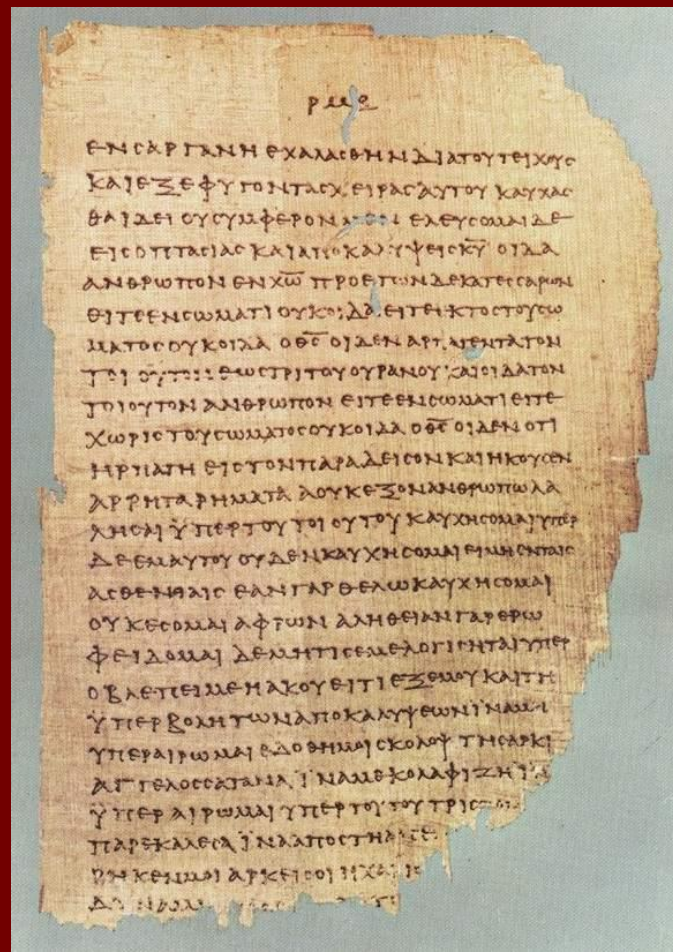 ΡΜΕ
ΕΝ ϹΑΡΓΑΝΗ ΕΧΑΛΑϹΘΗΝ ΔΙΑ ΤΟΥ ΤΕΙΧΟΥϹ
ΚΑΙ ΕΞΕΦΥΓΟΝ ΤΑϹ ΧΕΙΡΑϹ ΑΥΤΟΥ ΚΑΥΧΑϹ
ΘΑΙ ΔΕΙ ΟΥ ϹΥΜΦΕΡΟΝ ΜΕΝ ΕΛΕΥϹΟΜΑΙ ΔΕ
ΕΙϹ ΟΠΤΑϹΙΑϹ ΚΑΙ ΑΠΟΚΑΛΥΨΕΙϹ Κ̅Υ̅ ΟΙΔΑ
ΑΝΘΡΩΠΟΝ ΕΝ Χ̅Ω̅ ΠΡΟ ΕΤΩΝ ΔΕΚΑΤΕϹϹΑΡΩΝ
ΕΙΤΕ ΕΝ ϹΩΜΑΤΙ ΟΥΚ ΟΙΔΑ ΕΙΤΕ ΕΚΤΟϹ ΤΟΥ ϹΩ
ΜΑΤΟϹ ΟΥΚ ΟΙΔΑ Ο Θ̅Ϲ̅ ΟΙΔΕΝ ΑΡΠΑΓΕΝΤΑ ΤΟΝ
ΤΟΙΟΥΤΟΝ ΕΩϹ ΤΡΙΤΟΥ ΟΥΡΑΝΟΥ ΚΑΙ ΟΙΔΑ ΤΟΝ
ΤΟΙΟΥΤΟΝ ΑΝΘΡΩΠΟΝ ΕΙΤΕ ΕΝ ϹΩΜΑΤΙ ΕΙΤΕ
ΧΩΡΙϹ ΤΟΥ ϹΩΜΑΤΟϹ ΟΥΚ ΟΙΔΑ Ο Θ̅Ϲ̅ ΟΙΔΕΝ ΟΤΙ
ΗΡΠΑΓΗ ΕΙϹ ΤΟΝ ΠΑΡΑΔΕΙϹΟΝ ΚΑΙ ΗΚΟΥϹΕΝ
ΑΡΡΗΤΑ ΡΗΜΑΤΑ Α ΟΥΚ ΕΞΟΝ ΑΝΘΡΩΠΩ ΛΑ
ΛΗϹΑΙ ΫΠΕΡ ΤΟΥ ΤΟΙΟΥΤΟΥ ΚΑΥΧΗϹΟΜΑΙ ΥΠΕΡ
ΔΕ ΕΜΑΥΤΟΥ ΟΥΔΕΝ ΚΑΥΧΗϹΟΜΑΙ ΕΙ ΜΗ ΕΝ ΤΑΙϹ
ΑϹΘΕΝΕΙΑΙϹ ΕΑΝ ΓΑΡ ΘΕΛΩ ΚΑΥΧΗϹΟΜΑΙ
ΟΥΚ ΕϹΟΜΑΙ ΑΦΡΩΝ ΑΛΗΘΕΙΑΝ ΓΑΡ ΕΡΩ
ΦΕΙΔΟΜΑΙ ΔΕ ΜΗ ΤΙϹ ΕΜΕ ΛΟΓΙϹΗΤΑΙ ΥΠΕΡ
Ο ΒΛΕΠΕΙ ΜΕ Η ΑΚΟΥΕΙ ΤΙ ΕΞ ΕΜΟΥ ΚΑΙ ΤΗ
ΫΠΕΡΒΟΛΗ ΤΩΝ ΑΠΟΚΑΛΥΨΕΩΝ ΪΝΑ ΜΗ
ΥΠΕΡΑΙΡΩΜΑΙ ΕΔΟΘΗ ΜΟΙ ϹΚΟΛΟΨ ΤΗ ϹΑΡΚΙ
ΑΓΓΕΛΟϹ ϹΑΤΑΝΑ ΪΝΑ ΜΕ ΚΟΛΑΦΙΖΗ
ΫΠΕΡΑΙΡΩΜΑΙ ΥΠΕΡ ΤΟΥΤΟΥ ΤΡΙϹ
ΠΑΡΕΚΑΛΕϹΑ ΪΝΑ ΑΠΟϹΤΗ
ΡΗΚΕΝ ΜΟΙ ΑΡΚΕΙ ϹΟΙ Η ΧΑΡΙϹ